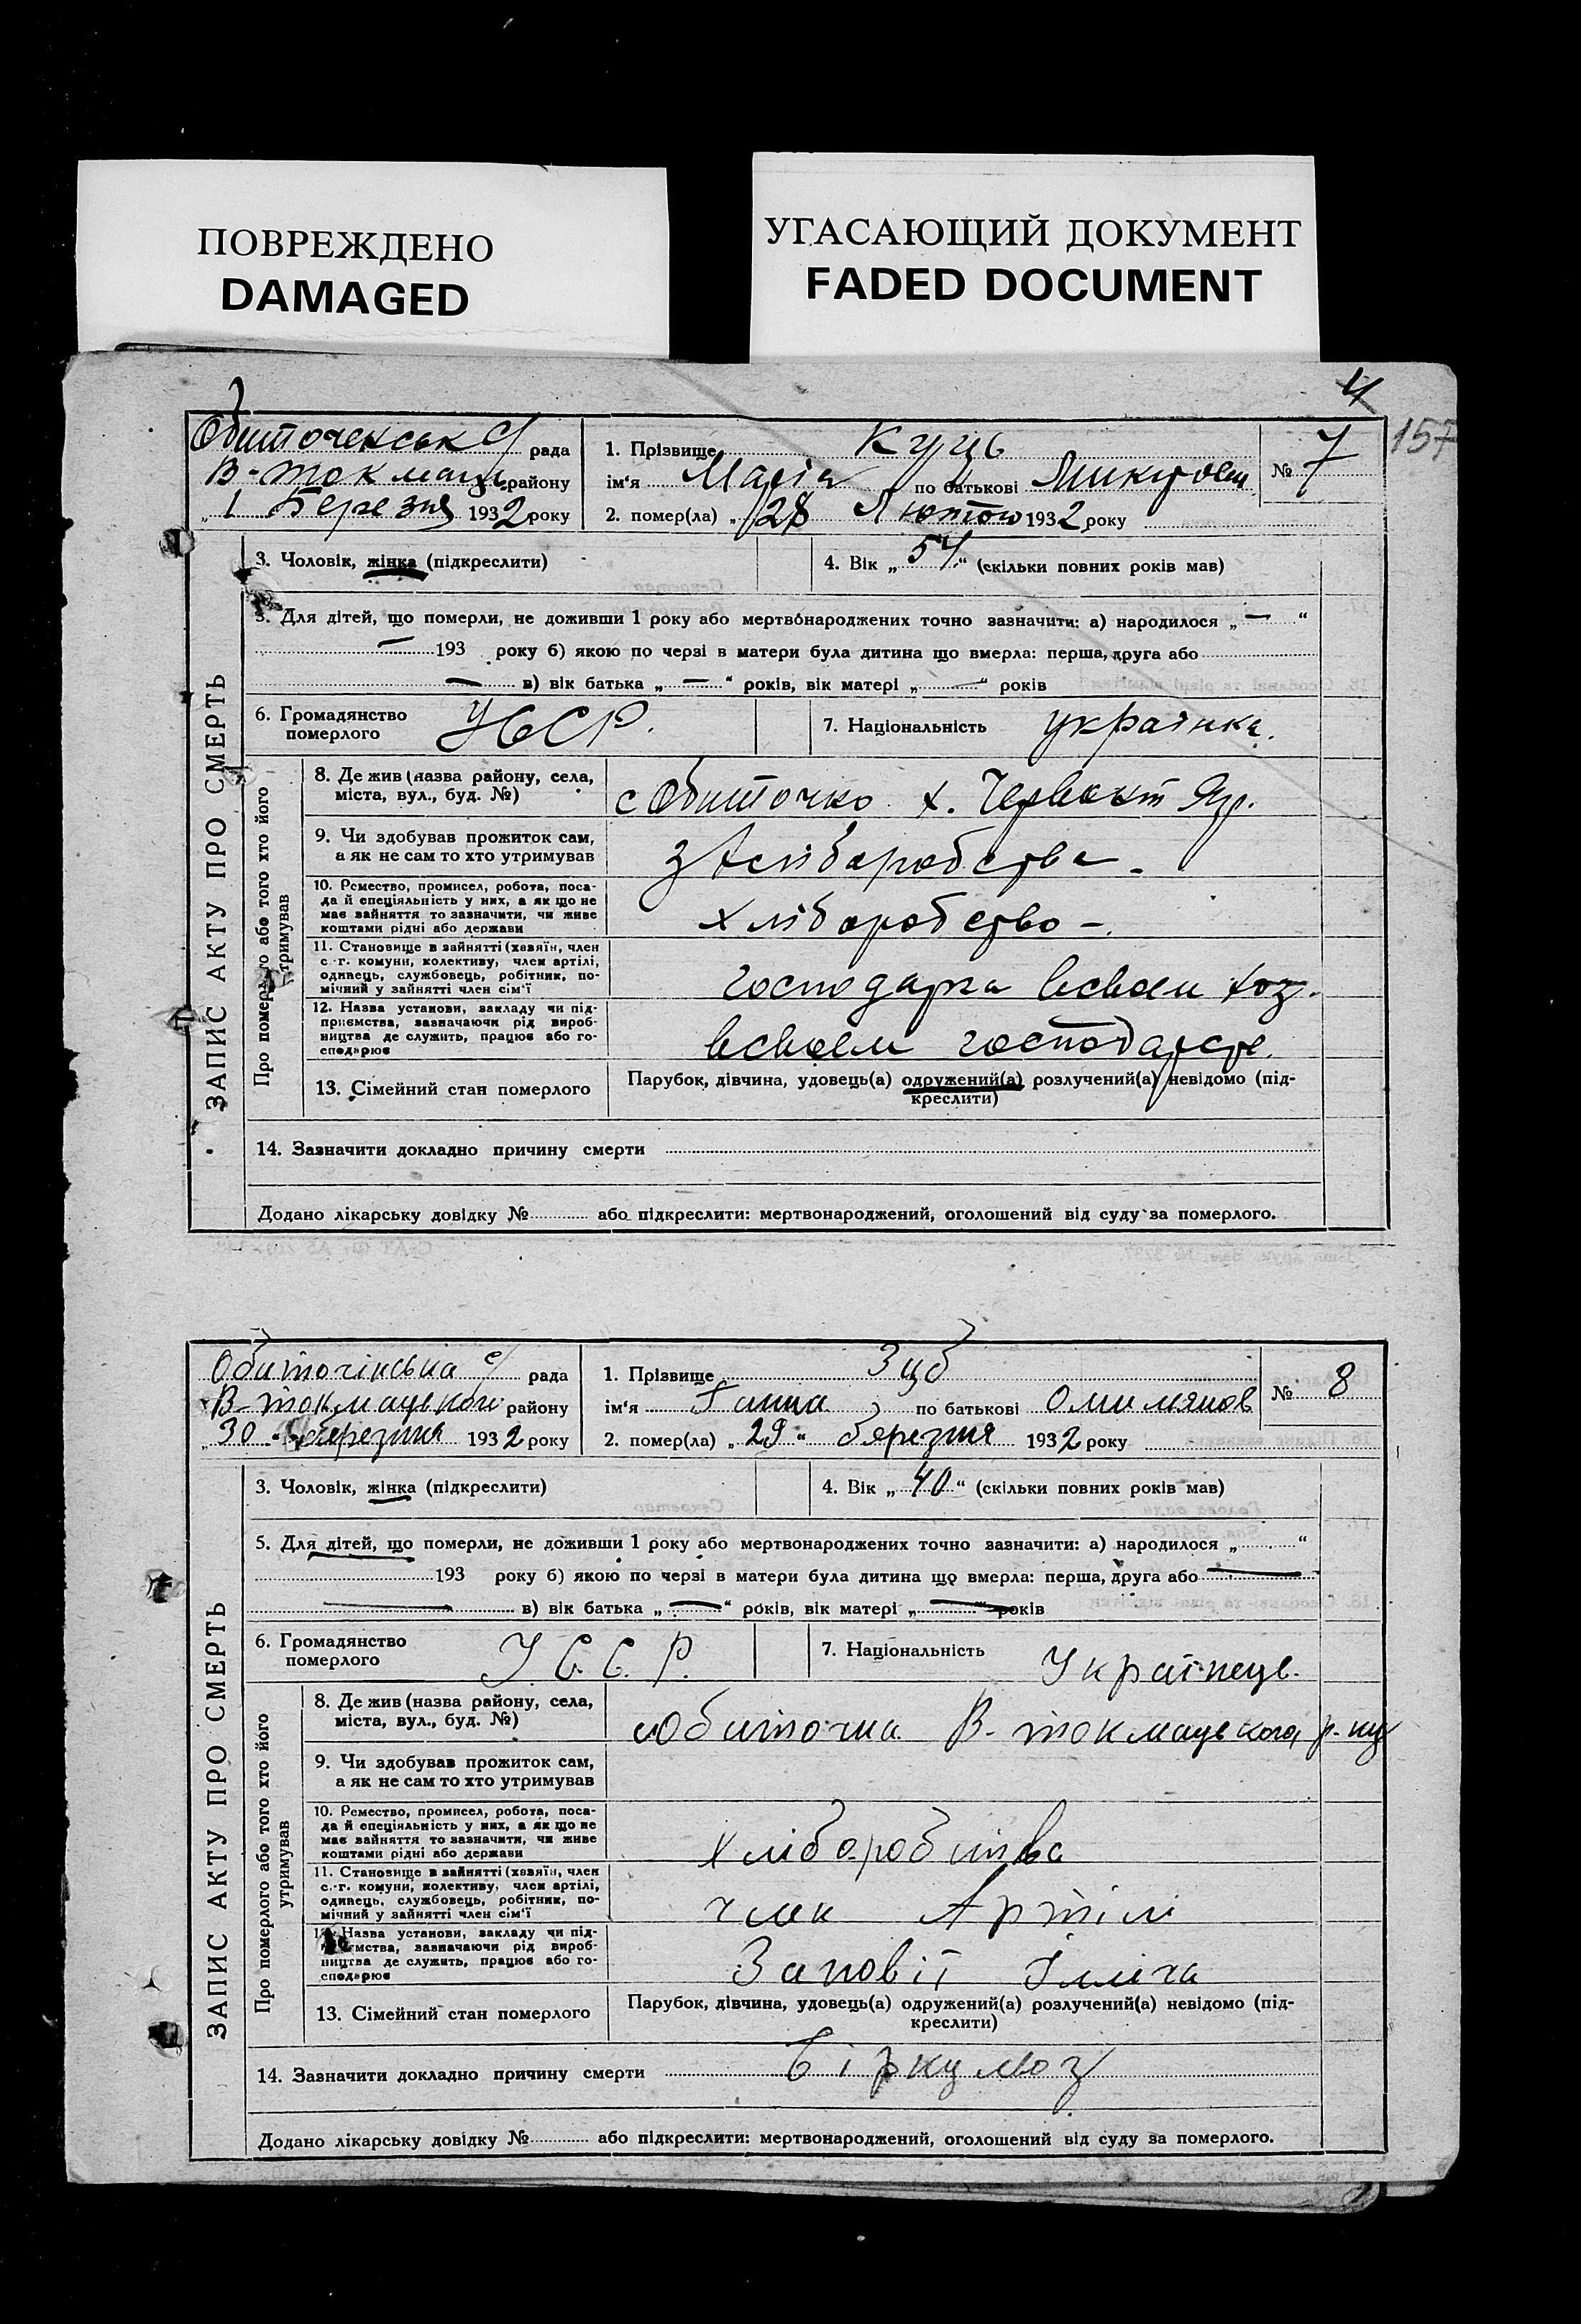 ПОВРЕЖДЕНО
DAMAGED
УГАСАЮЩИЙ ДОКУМЕНТ
FADED DOCUMENT
4
157
Обиточенськ с/ рада
В-Токмаць району
„ 1 Березня 1932 року
1. Прізвище Куць
ім'я Марія по батькові
№ 7
2. помер(ла) „ 28 Лютого 1932 року
ЗАПИС АКТУ ПРО СМЕРТЬ
3. Чоловік, жінка (підкреслити)
4. Вік „ 54 “ (скільки повних років мав)
5. Для дітей, що померли, не доживши 1 року або мертвонароджених точно зазначити: а) народилося „ — “
— 193 року б) якою по черзі в матери була дитина що вмерла: перша, друга або
— в) вік батька „ — “ років, вік матері „ — “ років
6. Громадянство померлого УССР.
7. Національність українка.
Про померлого або того хто його утримував
8. Де жив (назва району, села,
міста, вул., буд. №)
с Обиточко х. Яр.
9. Чи здобував прожиток сам,
а як не сам то хто утримував
з хліборобства —
10. Ремество, промисел, робота, поса-
да й спеціяльність у них, а як що не
має зайняття то зазначити, чи живе
коштами рідні або держави
хліборобство —
11. Становище в зайнятті (хазяїн, член
с.-г. комуни, колективу, член артілі,
одинець, службовець, робітник, по-
мічний у зайнятті член сім'ї
господарка всвоем хоз.
12. Назва установи, закладу чи під-
приємства, зазначаючи рід вироб-
ництва де служить, працює або го-
сподарює
всвоем
13. Сімейний стан померлого
Парубок, дівчина, удовець(а) одружений(а) розлучений(а) невідомо (під-
креслити)
14. Зазначити докладно причину смерти
Додано лікарську довідку № або підкреслити: мертвонароджений, оголошений від суду за померлого.
Обиточінська с/ рада
В-Токмацького району
„ 30 березння 1932 року
1. Прізвище Зуб
ім'я Ганна по батькові
№ 8
2. помер(ла) „ 29 “ березня 1932 року
ЗАПИС АКТУ ПРО СМЕРТЬ
3. Чоловік, жінка (підкреслити)
4. Вік „ 40 “ (скільки повних років мав)
5. Для дітей, що померли, не доживши 1 року або мертвонароджених точно зазначити: а) народилося „ “
193 року б) якою по черзі в матери була дитина що вмерла: перша, друга або —
— в) вік батька „ — “ років, вік матері „ — “ років
6. Громадянство померлого У.С.С.Р.
7. Національність Українець.
Про померлого або того хто його утримував
8. Де жив (назва району, села,
міста, вул., буд. №)
с Обиточна В-Токмацького р-ну
9. Чи здобував прожиток сам,
а як не сам то хто утримував
10. Ремество, промисел, робота, поса-
да й спеціяльність у них, а як що не
має зайняття то зазначити, чи живе
коштами рідні або держави
хліборобства
11. Становище в зайнятті (хазяїн, член
с.-г. комуни, колективу, член артілі,
одинець, службовець, робітник, по-
мічний у зайнятті член сім'ї
член Артіли
12. Назва установи, закладу чи під-
приємства, зазначаючи рід вироб-
ництва де служить, працює або го-
сподарює
Заповіт Ілліча
13. Сімейний стан померлого
Парубок, дівчина, удовець(а) одружений(а) розлучений(а) невідомо (під-
креслити)
14. Зазначити докладно причину смерти біркульоз
Додано лікарську довідку № або підкреслити: мертвонароджений, оголошений від суду за померлого.